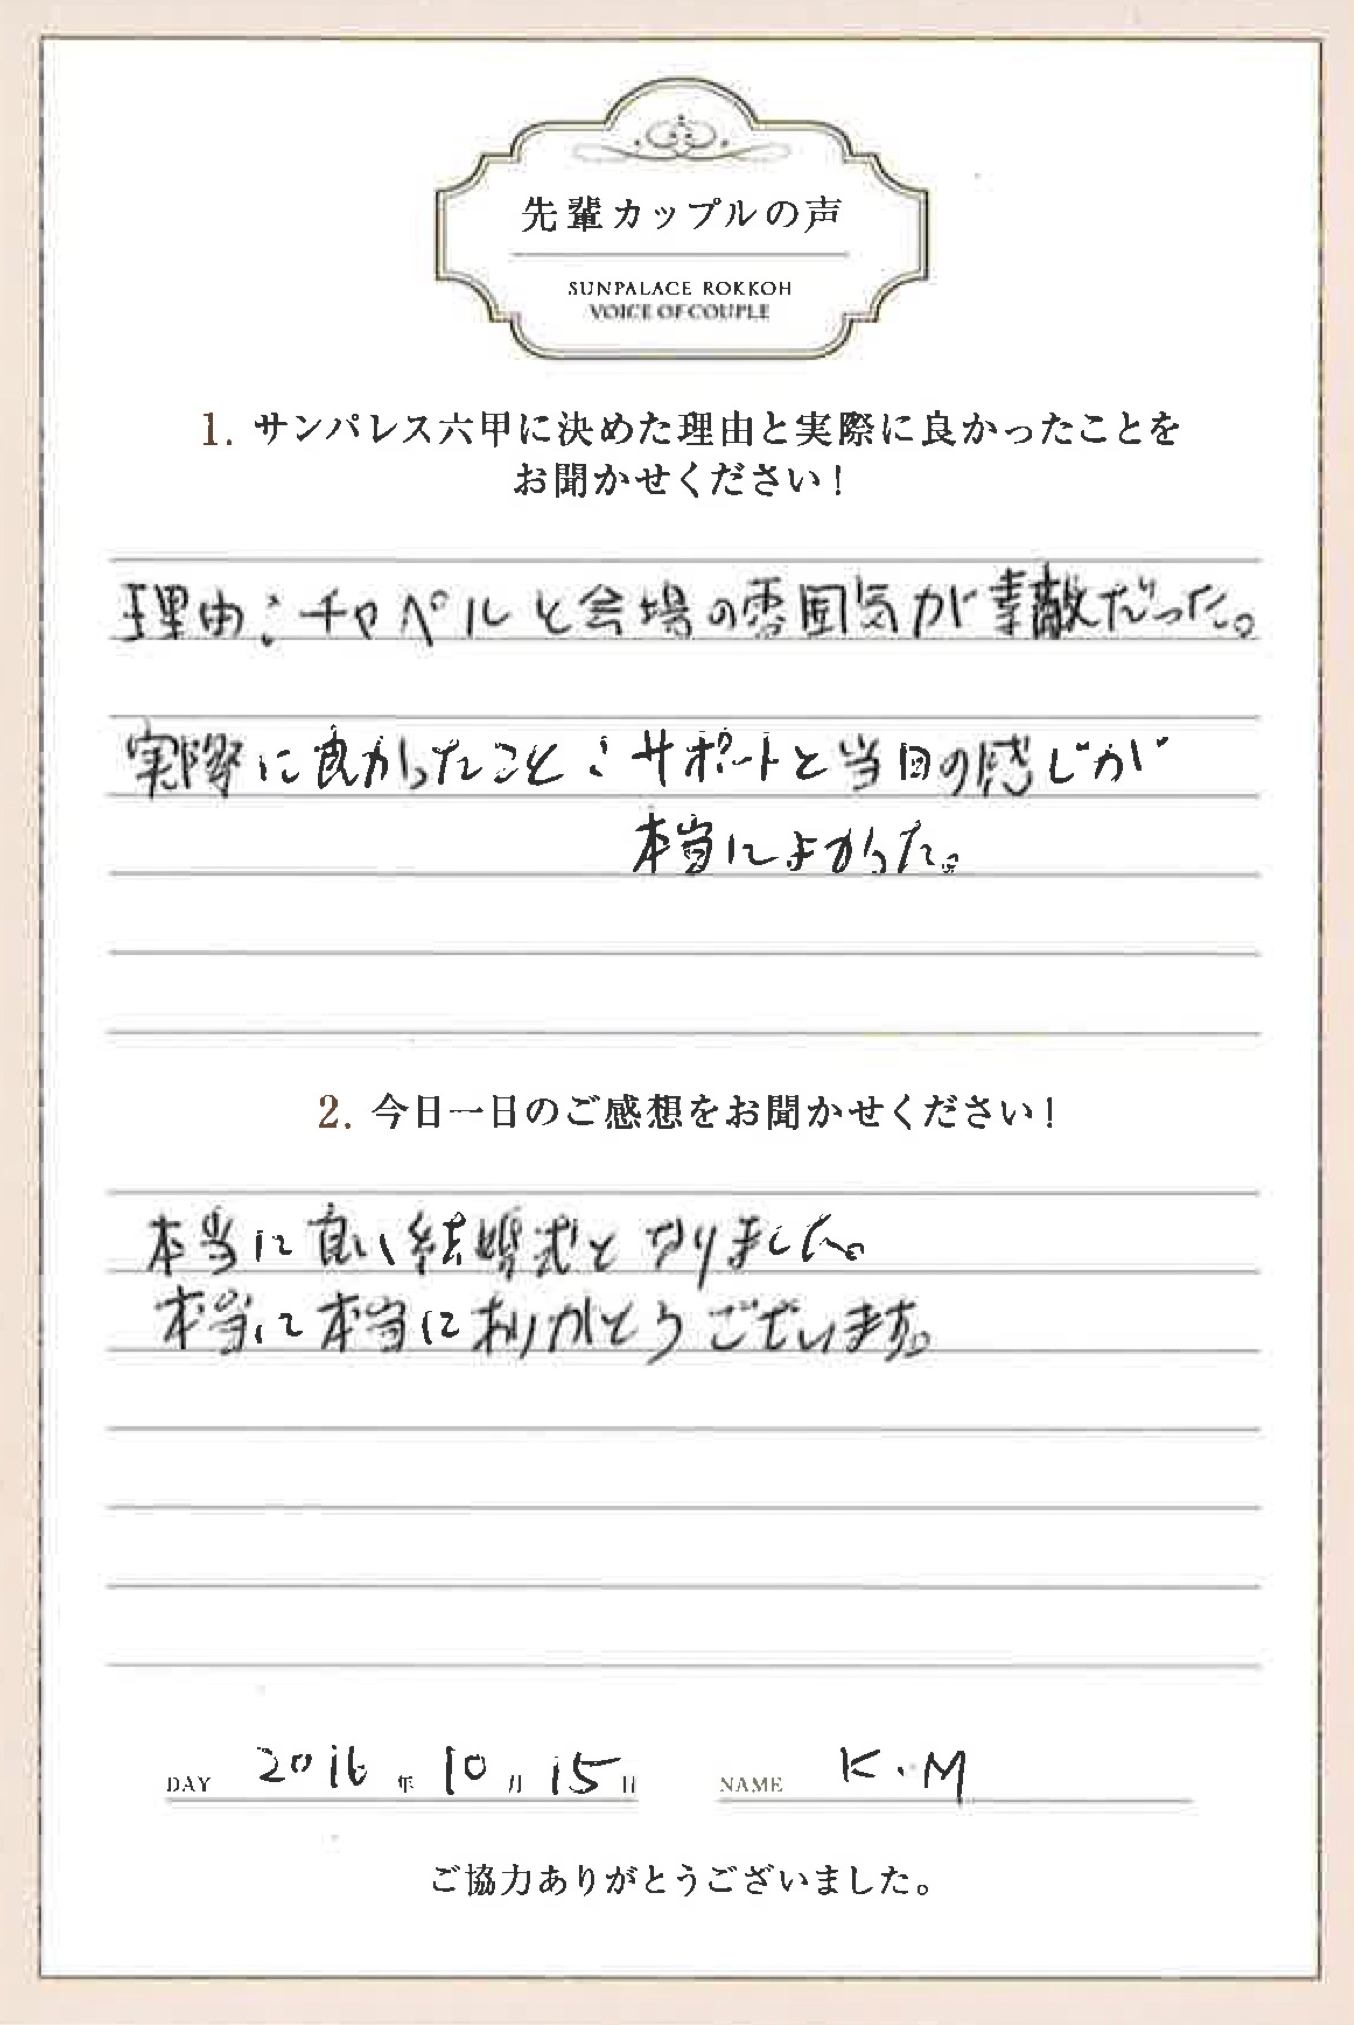 先輩カップルの声
SUNPALACE ROKKOH
VOICE OF COUPLE
1. サンパレス六甲に決めた理由と実際に良かったことを
お聞かせください!
理由:チャペルと会場の雰囲気が素敵だった。
実際に良かったこと:サポートと当日の感じが
本当によかった。
2. 今日一日のご感想をお聞かせください!
本当に良い結婚式となりました。
本当に本当にありがとうございます。
DAY 2016年 10月 15日 NAME K.M
ご協力ありがとうございました。